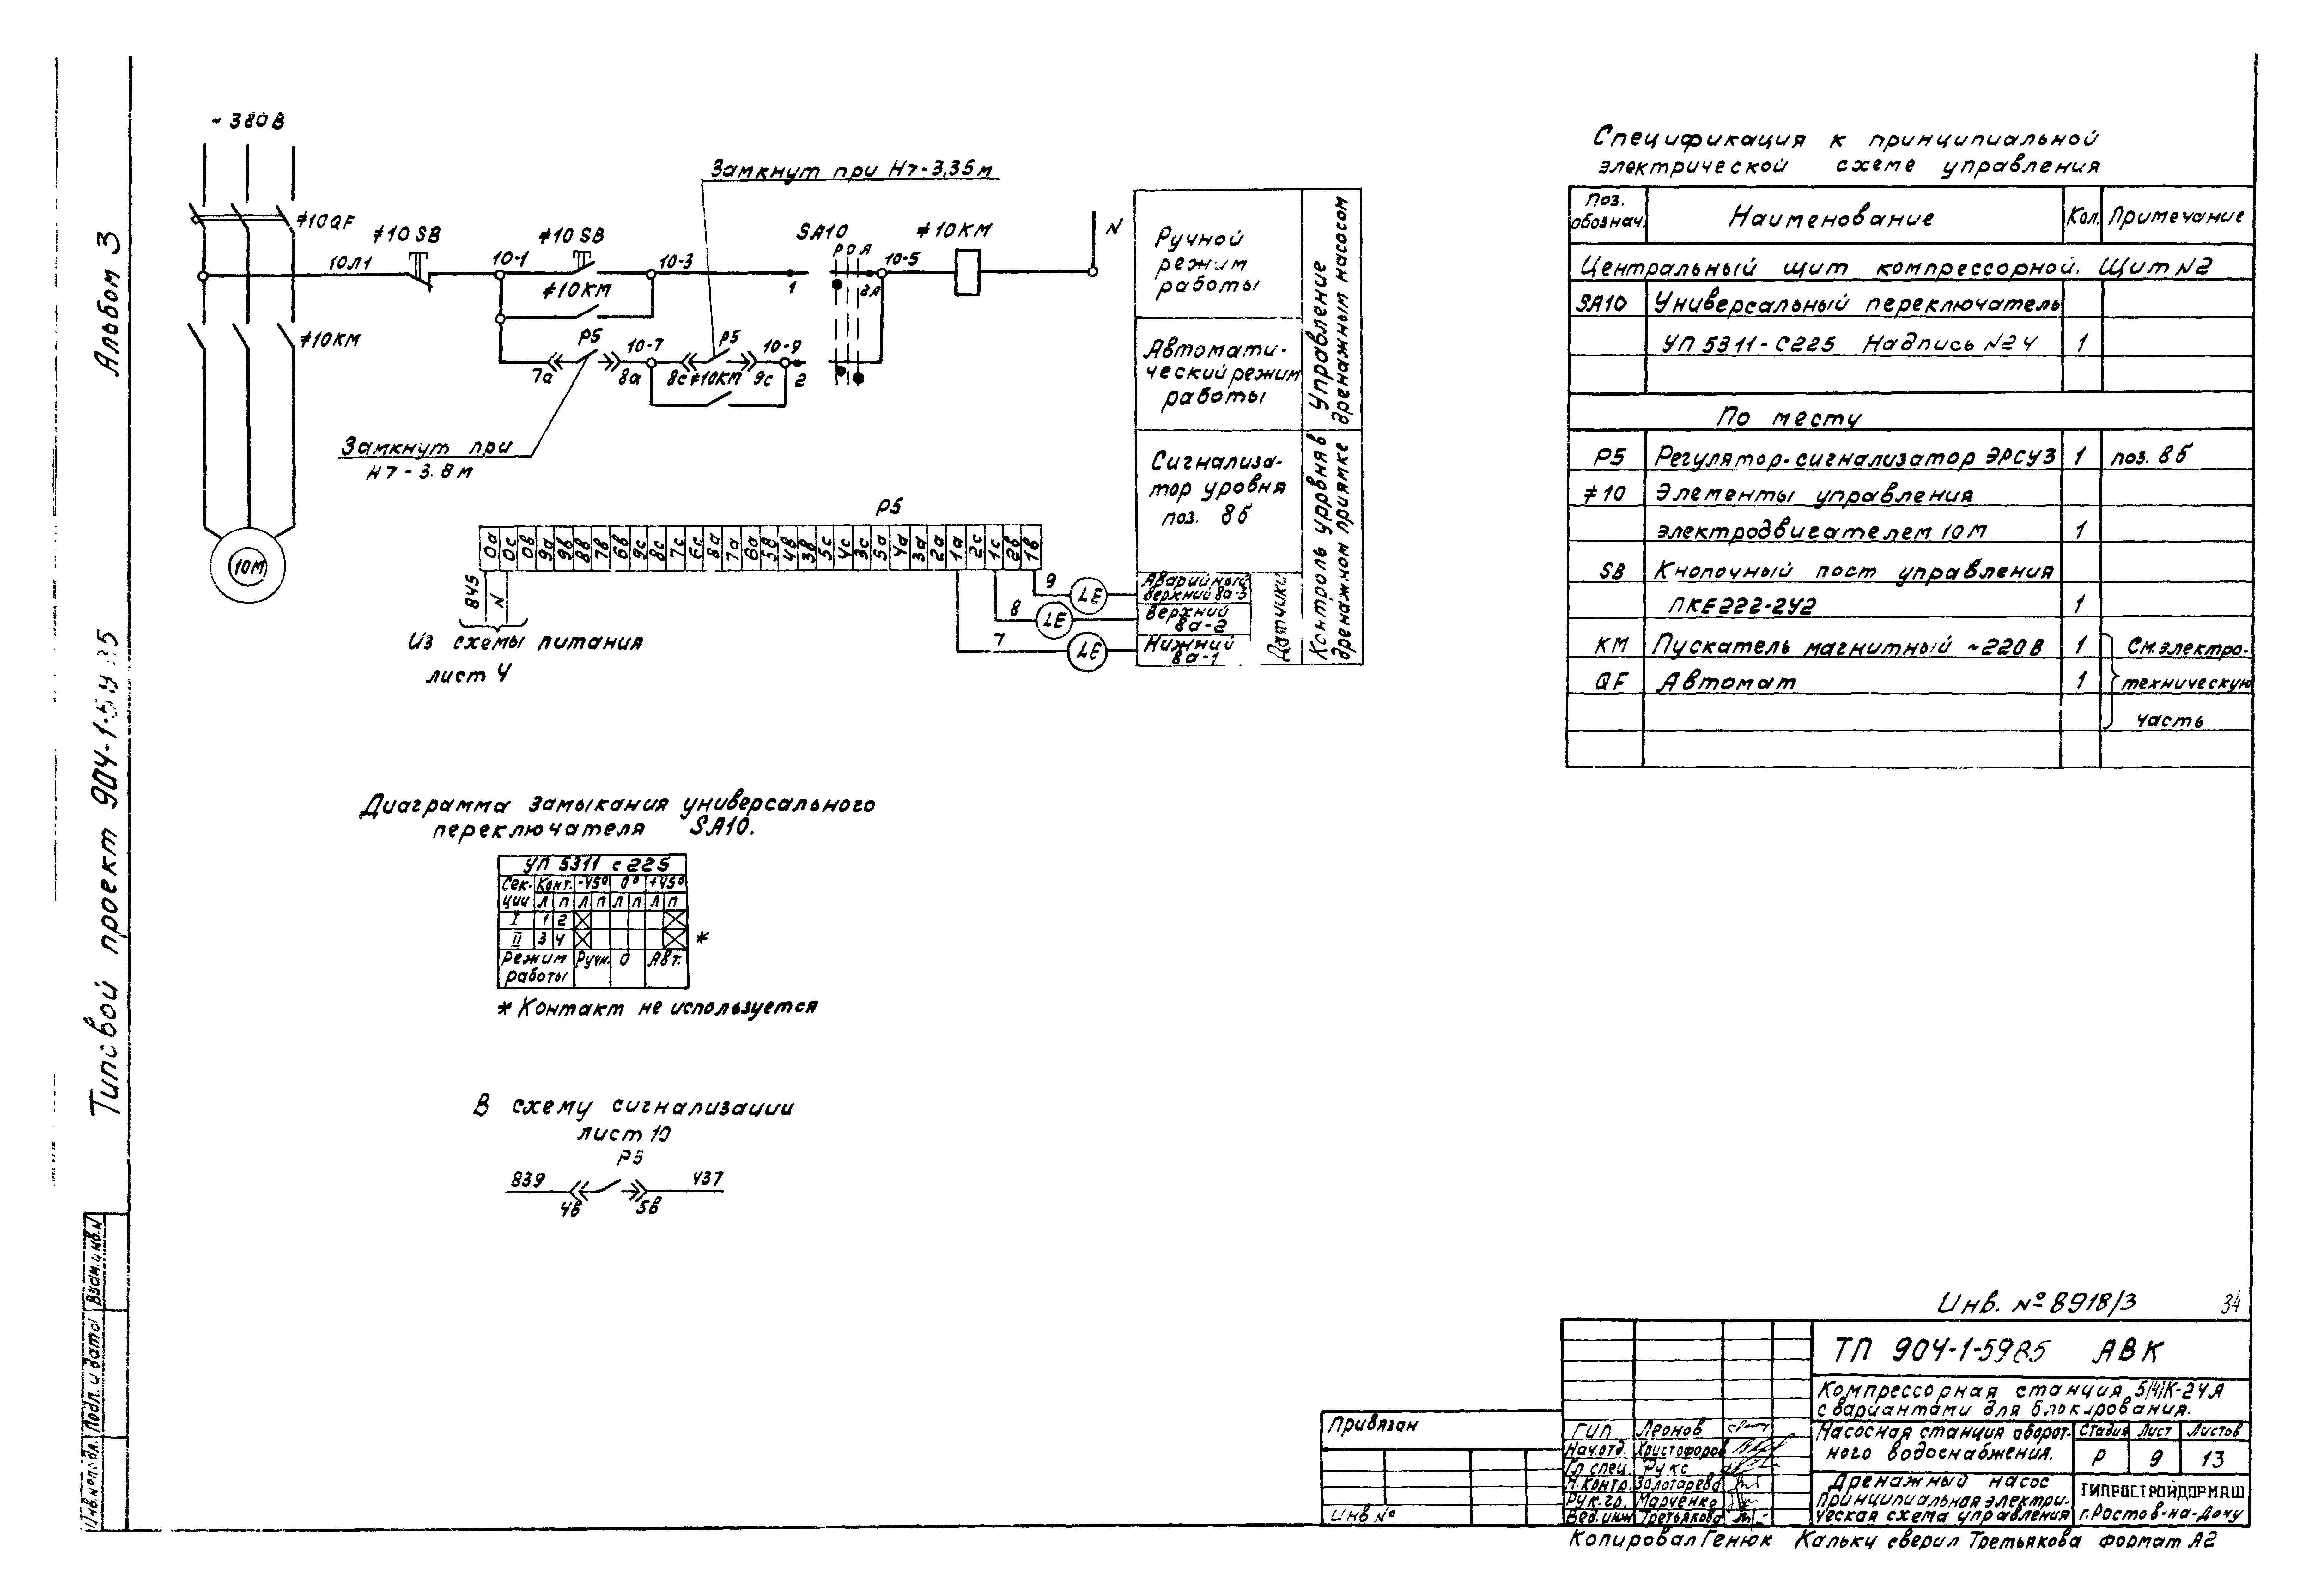 Альбом 3
Типовой проект 904-1-
Взам.инв.N
Подп. и дата
Инв.N подл.
~ 380 В
≠10QF
≠10КМ
10М
10Л1
≠10 SB
10-1
≠10 SB
≠10КМ
10-3
SA10
Р О А
1
2А
10-5
≠10КМ
N
Замкнут при Н7-3,35 м
Р5
7а
8а
10-7
Р5
8с
≠10КМ
9с
10-9
2
Замкнут при
Н7-3.8 м
Ручной
режим
работы
Автомати-
ческий режим
работы
Управление
дренажным насосом
Сигнализа-
тор уровня
поз. 8б
Контроль уровня в
дренажном приямке
Датчики
Аварийный
верхний 8а-3
Верхний
8а-2
Нижний
8а-1
Р5
0а 0с 0в 9а 9в 8в 7в 6в 9с 8с 7с 6с 8а 7а 6а 5в 4в 3в 5с 4с 3с 5а 4а 3а 2а 1а 2с 1с 2в 1в
845
N
9
LE
8
LE
7
LE
Из схемы питания
лист 4
Диаграмма замыкания универсального
переключателя SA10.
УП 5311 с 225
Сек-
ции
Конт.
-45°
0°
+45°
Л П Л П Л П Л П
I 1 2
II 3 4
*
Режим
работы
Ручн.
0
Авт.
* Контакт не используется
В схему сигнализации
лист 10
Р5
839
437
4в
5в
Спецификация к принципиальной
электрической схеме управления
Поз.
обознач.
Наименование
Кол.
Примечание
Центральный щит компрессорной. Щит N2
SA10 Универсальный переключатель
УП 5311-С225 Надпись N24 1
По месту
Р5 Регулятор-сигнализатор ЭРСУ3 1 поз. 8б
≠10 Элементы управления
электродвигателем 10М 1
SB Кнопочный пост управления
ПКЕ222-2У2 1
КМ Пускатель магнитный ~220В 1 См.электро-
QF Автомат 1 техническую
часть
Инв. №8918/3
34
ТП 904-1-5985 АВК
Компрессорная станция 5(4)К-24А
с вариантами для блокирования.
Насосная станция оборот-
ного водоснабжения.
Стадия Лист Листов
Р 9 13
Дренажный насос
Принципиальная электри-
ческая схема управления
ГИПРОСТРОЙДОРМАШ
г.Ростов-на-Дону
ГИП Леонов
Нач.отд. Христофоров
Гл спец. Рукс
Н.контр. Золотарева
Рук.гр. Марченко
Вед.инж Третьякова
Привязан
Инв №
Копировал Генюк Кальку сверил Третьякова формат А2